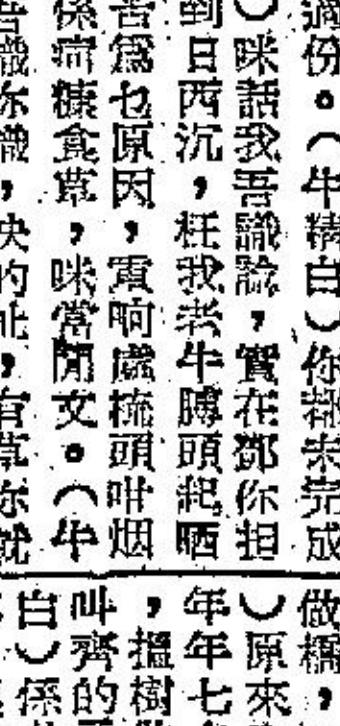 過份。（牛精白）你都未完成
）咪話我吾識診，實在鄧你担
到日西沉，枉我老牛膊頭起晒
苦為乜原因，電晌處梳頭咁烟
係痾糠食草，咪當閒文。（牛
吾識你識，快的
有草你就
做橋，
）原來
年年七
，搵樹
叫齊的
白）係